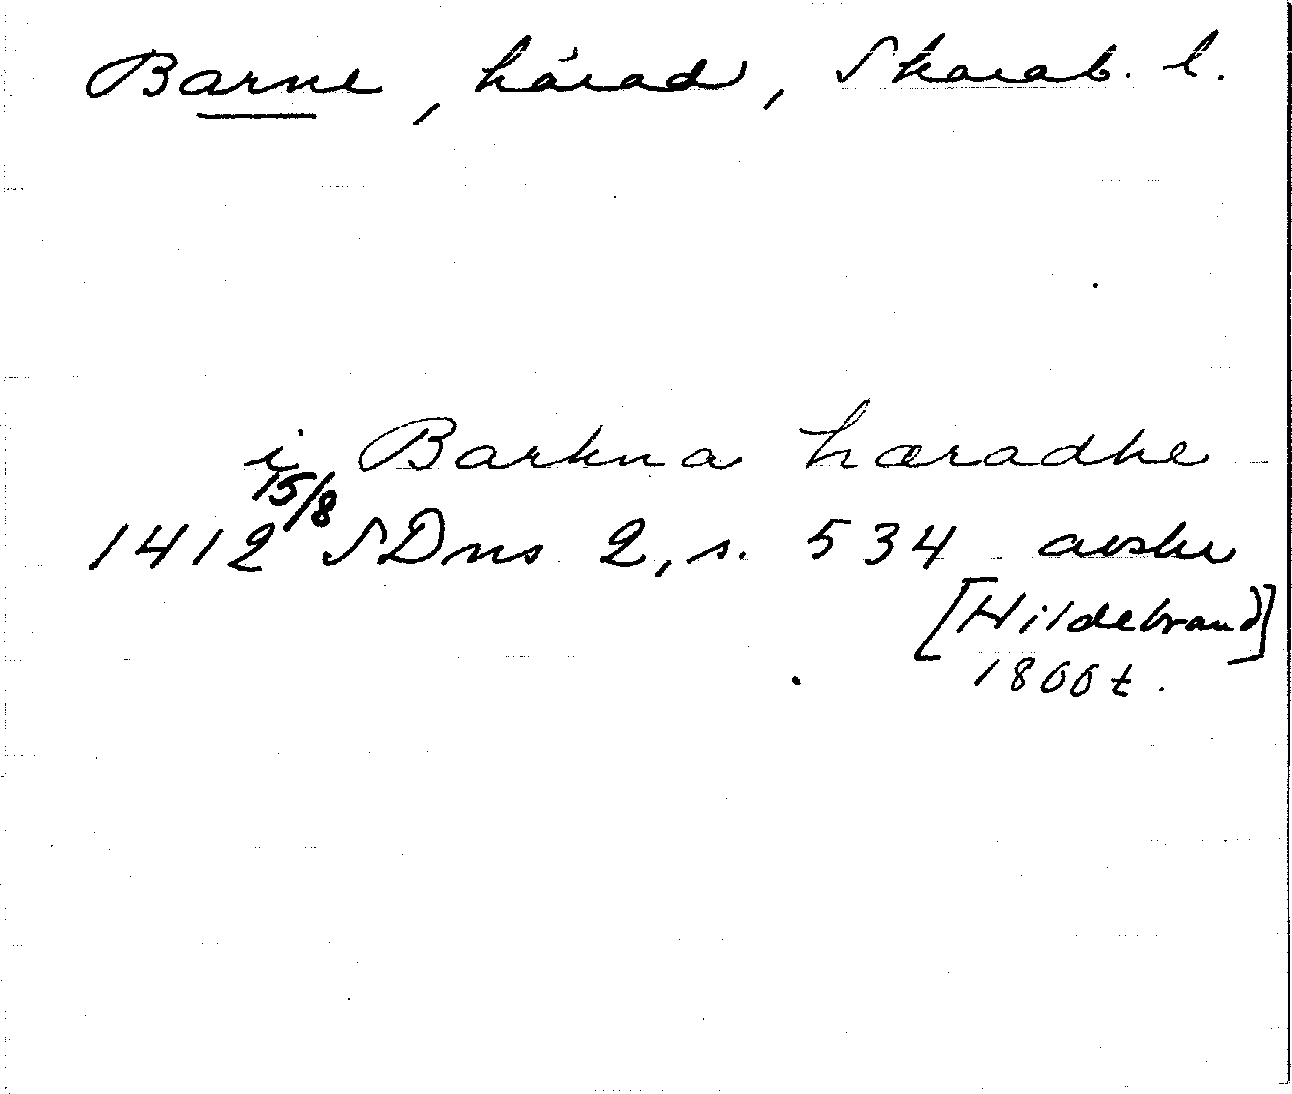 Barne, härad, Skarab. l.
i Barkna hæradhe
1412 15/8 SDns 2, s. 534 avskr
[Hildebrand]
1800 t.